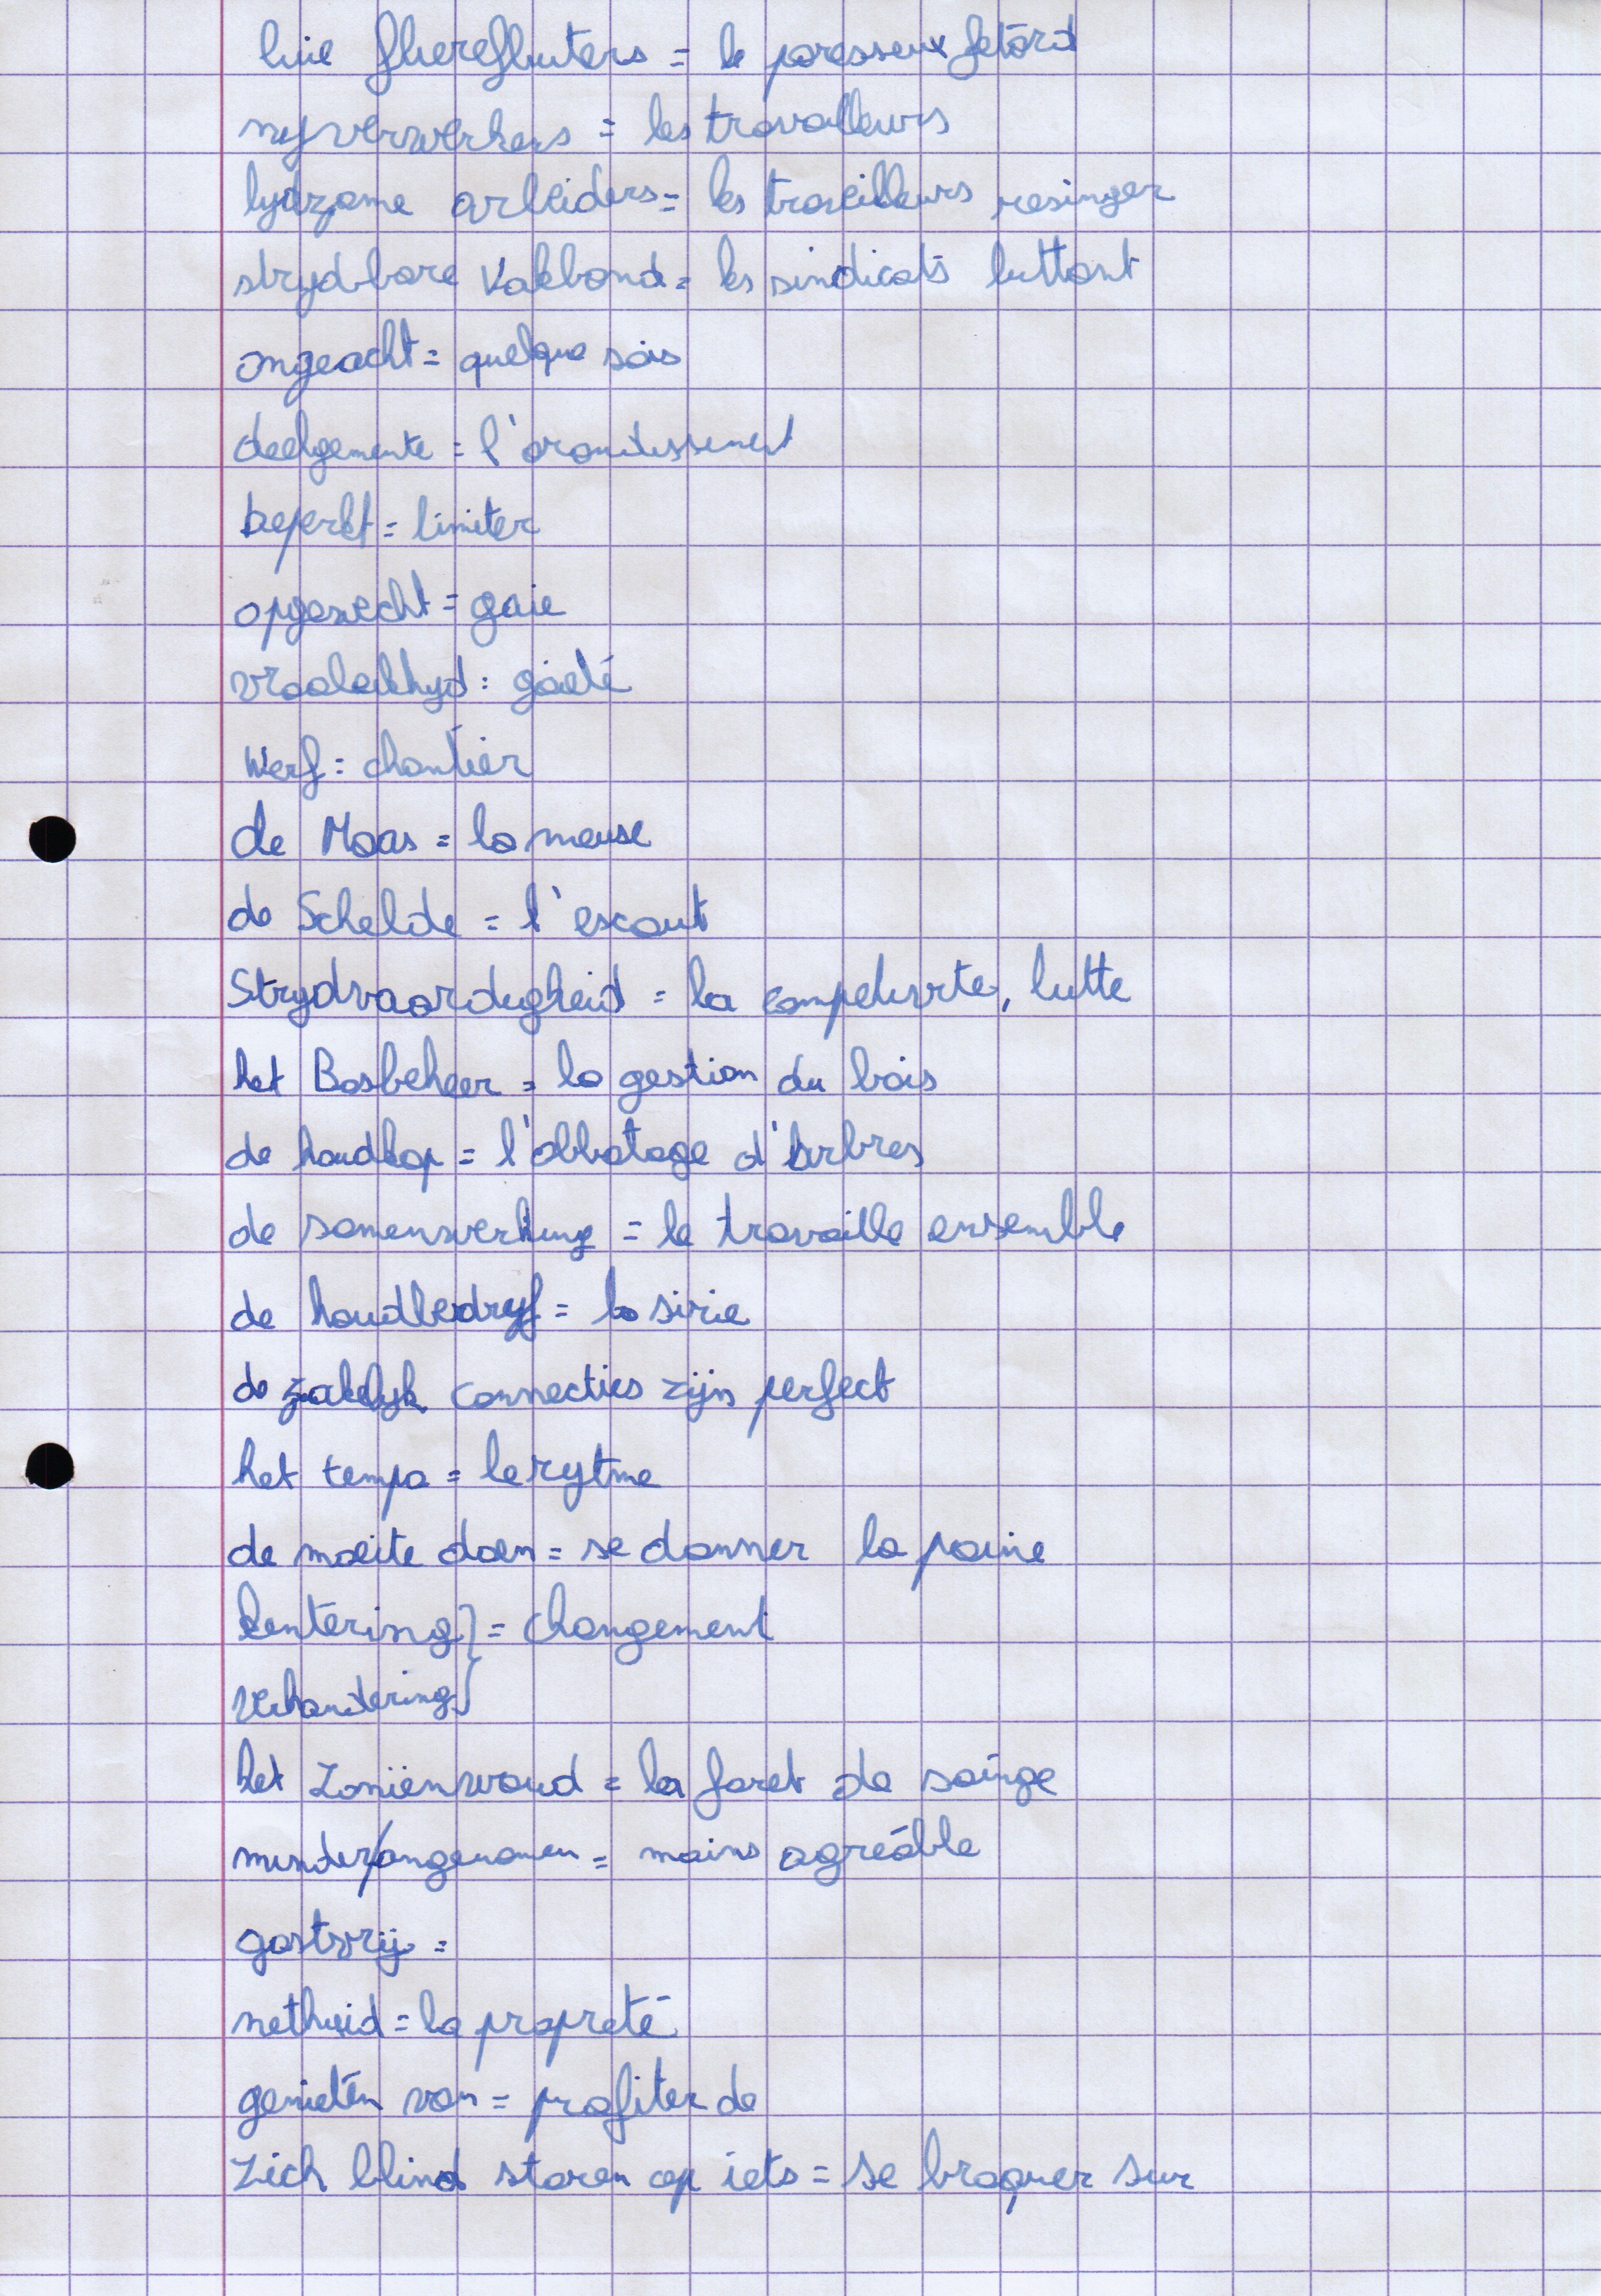 luie fherefluters = le paresseux fetård
nyverwerkers = les travailleurs
lydzame arbeiders = les travailleurs resinger
strydbare Vakbond = les sindicats luttant
ongeacht = quelque sois
deelgemente = l'arondissement
beperkt = limiter
opgewecht = gaie
vroolekhyd : gaieté
Werf = chantier
de Maas = la meuse
de Schelde = l'escaut
Strydvaardigheid = la competivite, lutte
het Bosbeheer = la gestion du bois
de houdkap = l'abbatage d'arbres
de samenwerking = le travaille ensemble
de houdbedryf = la sirie
de zakelyk connecties zijn perfect
het tempo = le rytme
de moeite doen = se donner la paine
kentering } = changement
Verhandering }
het Zoniënwoud = la foret de soinge
minder/angenamen = moins agréable
gastvrij =
netheid = la propreté
genieten van = profiter de
Zich blind staren op iets = se braquer sur